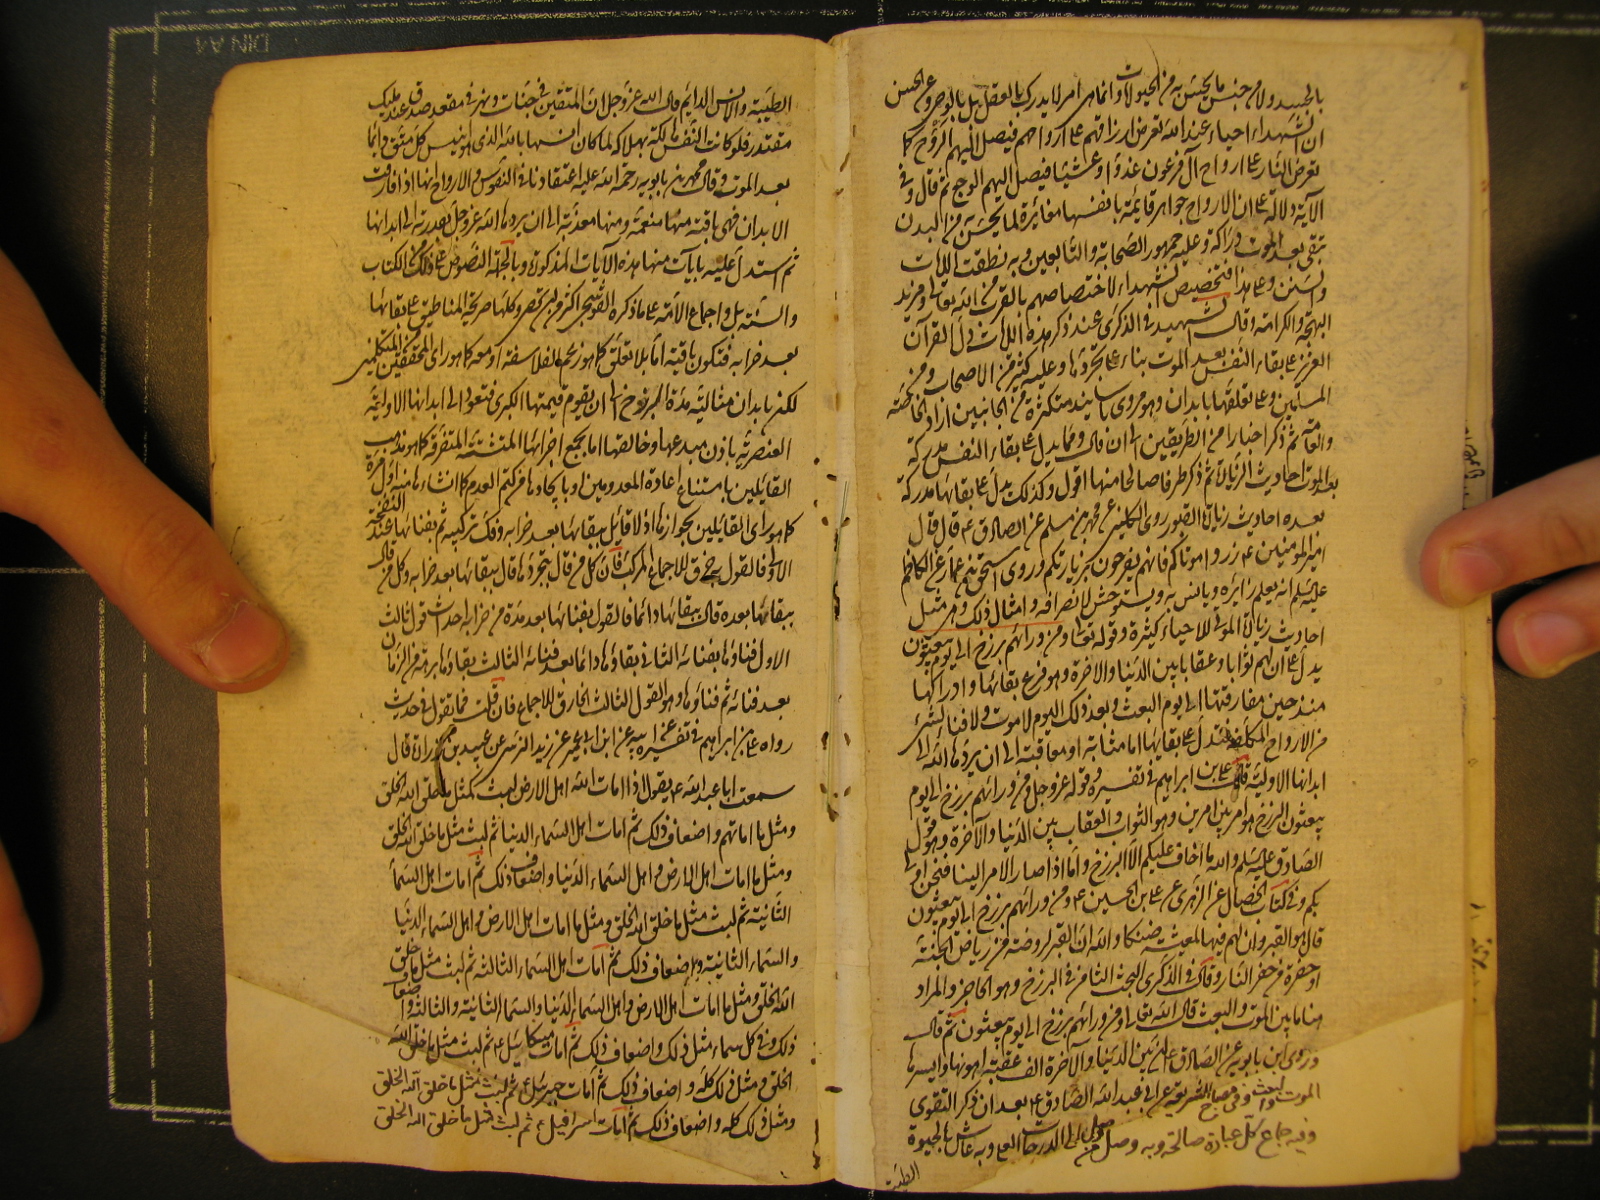 بالجسد ولا من جنس ما يحس به من الحيوانات وانما هي امر لا يدرك بالعقل بل بالوحي وعن الحسن
ان الشهداء احياء عند الله تعرض ارزاقهم على ارواحهم فيصل اليهم الروح كما
تعرض النار على ارواح آل فرعون غدوا وعشيا فيصل اليهم الوجع ثم قال وفي
الآية دلالة على ان الارواح جواهر قائمة بانفسها مغائرة لما يحس به من البدن
تبقى بعد الموت دراكة وعليه جمهور الصحابة والتابعين وبه نطقت الآيات
والسنن وعلى هذا فتخصيص الشهداء لاختصاصهم بالقرب من الله تعالى ومزيد
البهجة والكرامة وقال الشهيد في الذكرى عند ذكر هذه الآيات دل القرآن
العزيز على بقاء النفس بعد الموت بناء على تجردها وعليه كثير من الاصحاب ومن
المسلمين وعلى تعلقها بابدان وهو مروي باسانيد متكثرة من الجانبين اراد الخاصة
والعامة ثم ذكر اخبارا من الطريقين الى ان قال ومما يدل على بقاء النفس مدركة
بعد الموت احاديث الزيارة ثم ذكر طرفا صالحا منها اقول وكذلك يدل على بقائها مدركة
بعده احاديث زيارة القبور روى الكليني عن محمد بن مسلم عن الصادق ع قال قال
امير المؤمنين ع زوروا موتاكم فانهم يفرحون بزيارتكم وروى اسحق بن عمار عن الكاظم
عليه السلم انه يعلم زائره ويانس به ويستوحش لانصرافه وامثال ذلك وهي مثل
احاديث زيارة الموتى للاحياء كثيرة وقوله تعالى ومن ورائهم برزخ الى يوم يبعثون
يدل على ان لهم ثوابا وعقابا بين الدنيا والاخرة وهو فرع بقائها وادراكها
منذ حين مفارقتها الى يوم البعث وبعد ذلك اليوم لا موت ولا فنا لشيء
من الارواح المكلفة فتدل على بقائها اما مثابة او معاقبة الى ان يردها الله الى
ابدانها الاولية قال على بن ابراهيم في تفسيره قوله عز وجل ومن ورائهم برزخ الى يوم
يبعثون البرزخ هو امر بين امرين وهو الثواب والعقاب بين الدنيا والآخرة وهو قول
الصادق عليه السلم والله ما اخاف عليكم الا البرزخ واما اذا صار الامر الينا فنحن اولى
بكم وفي كتاب الخصال عن الزهري عن على بن الحسين ع ومن ورائهم برزخ الى يوم يبعثون
قال هو القبر وان لهم فيها لمعيشة ضنكا والله ان القبر لروضة من رياض الجنة
او حفرة من حفر النار وقال في الذكرى البحث الثامن في البرزخ وهو الحاجز والمراد
هنا ما بين الموت والبعث قال الله تعالى ومن ورائهم برزخ الى يوم يبعثون ثم قال
وروى ابن بابويه عن الصادق ع ان بين الدنيا والآخرة الف عقبة اهونها وايسرها
الموت والبعث وفي مصباح الشريعة عن ابي عبد الله الصادق ع بعد ان ذكر التقوى
وفيه جماع كل عبادة صالحة وبه وصل من وصل الى الدرجات العلى وبه عاش بالحيوة
الطيبة
الطيبة والانس الدايم قال الله عز وجل ان المتقين في جنات ونهر في مقعد صدق عند مليك
مقتدر فلو كانت النفس هالكة بهلاكه لما كان انسها بالله الذي هو انيس كل متق دائما
بعد الموت وقال محمد بن بابويه رحمة الله عليه اعتقادنا في النفوس والارواح انها اذا فارقت
الابدان فهي باقية منها منعمة ومنها معذبة الى ان يردها الله عز وجل بقدرته الى ابدانها
ثم استدل عليه بآيات منها هذه الآيات المذكورة وبالجملة النصوص على ذلك من الكتاب
والسنة بل واجماع الامة على ما ذكره القوشجي اكثر من ان تحصى وكلها صريحة المناطيق على بقائها
بعد خرابه فتكون باقية اما بلا تعلق كما هو زعم الفلاسفة او معه كما هو راى المحققين المتكلمين
لكن بابدان مثالية مدة البرزخ الى ان يقوم قيمتها الكبرى فتعود الى ابدانها الاولية
العنصرية باذن مبدعها وخالقها اما بجمع اجزائها المتشتتة المتفرقة كما هو مذهب
القايلين بامتناع اعادة المعدومين او بايجادها من كتم العدم كما انشاءها منه اول مرة
كما هو راى القائلين بجوازها اذ لا قايل ببقائها بعد خرابه وفك تركيبه ثم بفنائها عند النفخة
الاولى فالقول به خرق للاجماع المركب فان كل من قال بتجردها قال ببقائها بعد خرابه وكل من قال
ببقائها بعده قال ببقائها دائما فالقول بفنائها بعد مدة من خرابه احداث قول ثالث
الاول فناؤها بفنائه الثاني بقاؤها دائما بعد فنائه الثالث بقاؤها برهة من الزمان
بعد فنائه ثم فناؤها وهو القول الثالث الخارق للاجماع فان قلت فما تقول في حديث
رواه على بن ابراهيم في تفسيره عن ابيه عن ابن ابي عمير عن زيد النرسي عن عبيد بن زرارة قال
سمعت ابا عبد الله ع يقول اذا امات الله اهل الارض لبث كمثل ما خلق الله الخلق
ومثل ما اماتهم واضعاف ذلك ثم امات اهل السماء الدنيا ثم لبث مثل ما خلق الله الخلق
ومثل ما امات اهل الارض واهل السماء الدنيا واضعاف ذلك ثم امات اهل السماء
الثانية ثم لبث مثل ما خلق الله الخلق ومثل ما امات اهل الارض واهل السماء الدنيا
والسماء الثانية واضعاف ذلك ثم امات اهل السماء الثالثة ثم لبث مثل ما خلق
الله الخلق ومثل ما امات اهل الارض واهل السماء الدنيا والسماء الثانية والثالثة واضعاف
ذلك وفي كل سماء مثل ذلك واضعاف ذلك ثم امات ميكائيل ع ثم لبث مثل ما خلق الله
الخلق ومثل ذلك كله واضعاف ذلك ثم امات جبرئيل ع ثم لبث مثل ما خلق الله الخلق
ومثل ذلك كله واضعاف ذلك ثم امات اسرافيل ع ثم لبث مثل ما خلق الله الخلق